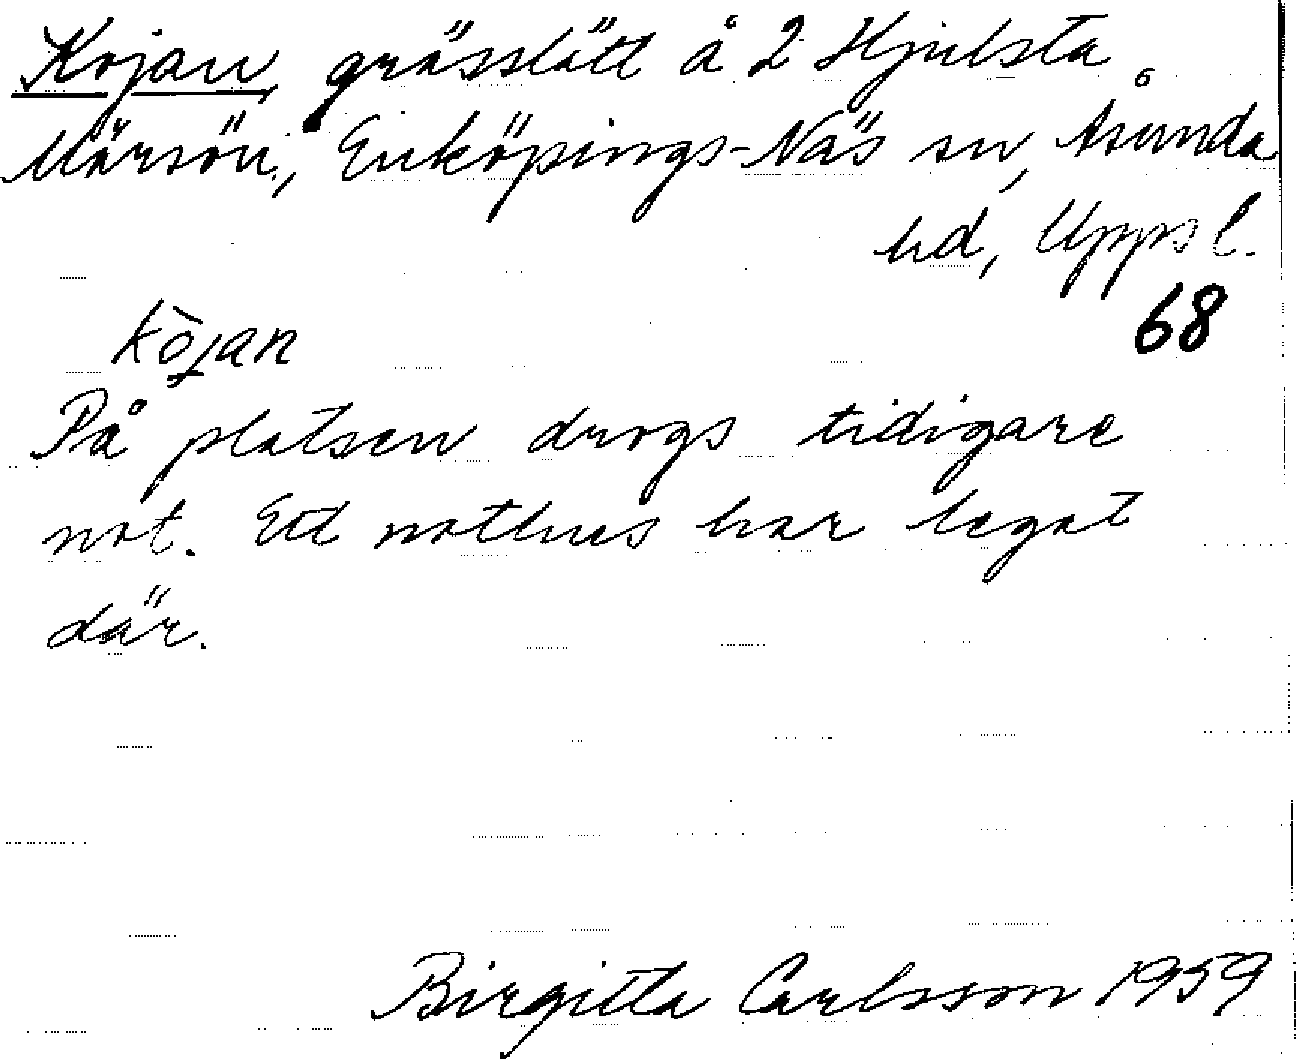 Kojan, grässlätt å 2 Hjulsta
Märsön, Enköpings-Näs sn, Åsunda
hd, Uppsl.
68
kòjan
På platsen drogs tidigare
not. Ett nothus har legat
där.
Birgitta Carlsson 1959